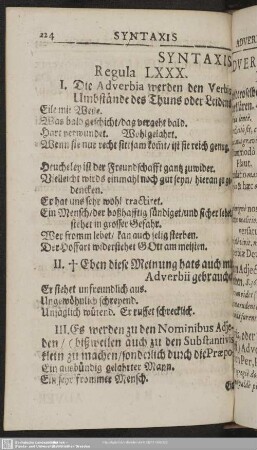 224 SYNTAXIS
SYNTAXIS
Regula LXXX.
I. Die Adverbia werden den Verbis
Umbstände des Thuns oder Leidens
Eile mit Weile.
Was bald geschicht/ das vergeht bald.
Hart verwundet. Wohl gelahrt.
Wenn sie nur recht sittsam komt/ ist sie reich genug.
Heucheley ist der Freundschafft gantz zuwider.
Vielleicht wirds einmahl noch gut seyn/ hieran zu ge-
dencken.
Er hat uns sehr wohl tractiret.
Ein Mensch/ der boßhafftig sündiget/ und sicher lebet
stehet in grosser Gefahr.
Wer fromm lebet/ kan auch selig sterben.
Der Hoffart widerstehet GOtt am meisten.
II. † Eben diese Meinung hats auch mit
Adverbii gebrauch
Er stehet unfreundlich aus.
Ungewöhnlich schreyend.
Unsäglich wütend. Er ruffet schrecklich.
III. Es werden zu den Nominibus Adje-
den / ( bißweilen auch zu den Substantivis
klein zu machen/ sonderlich durch die Præpo-
Ein ausbündig gelahrter Mann.
Ein sehr frommer Mensch.